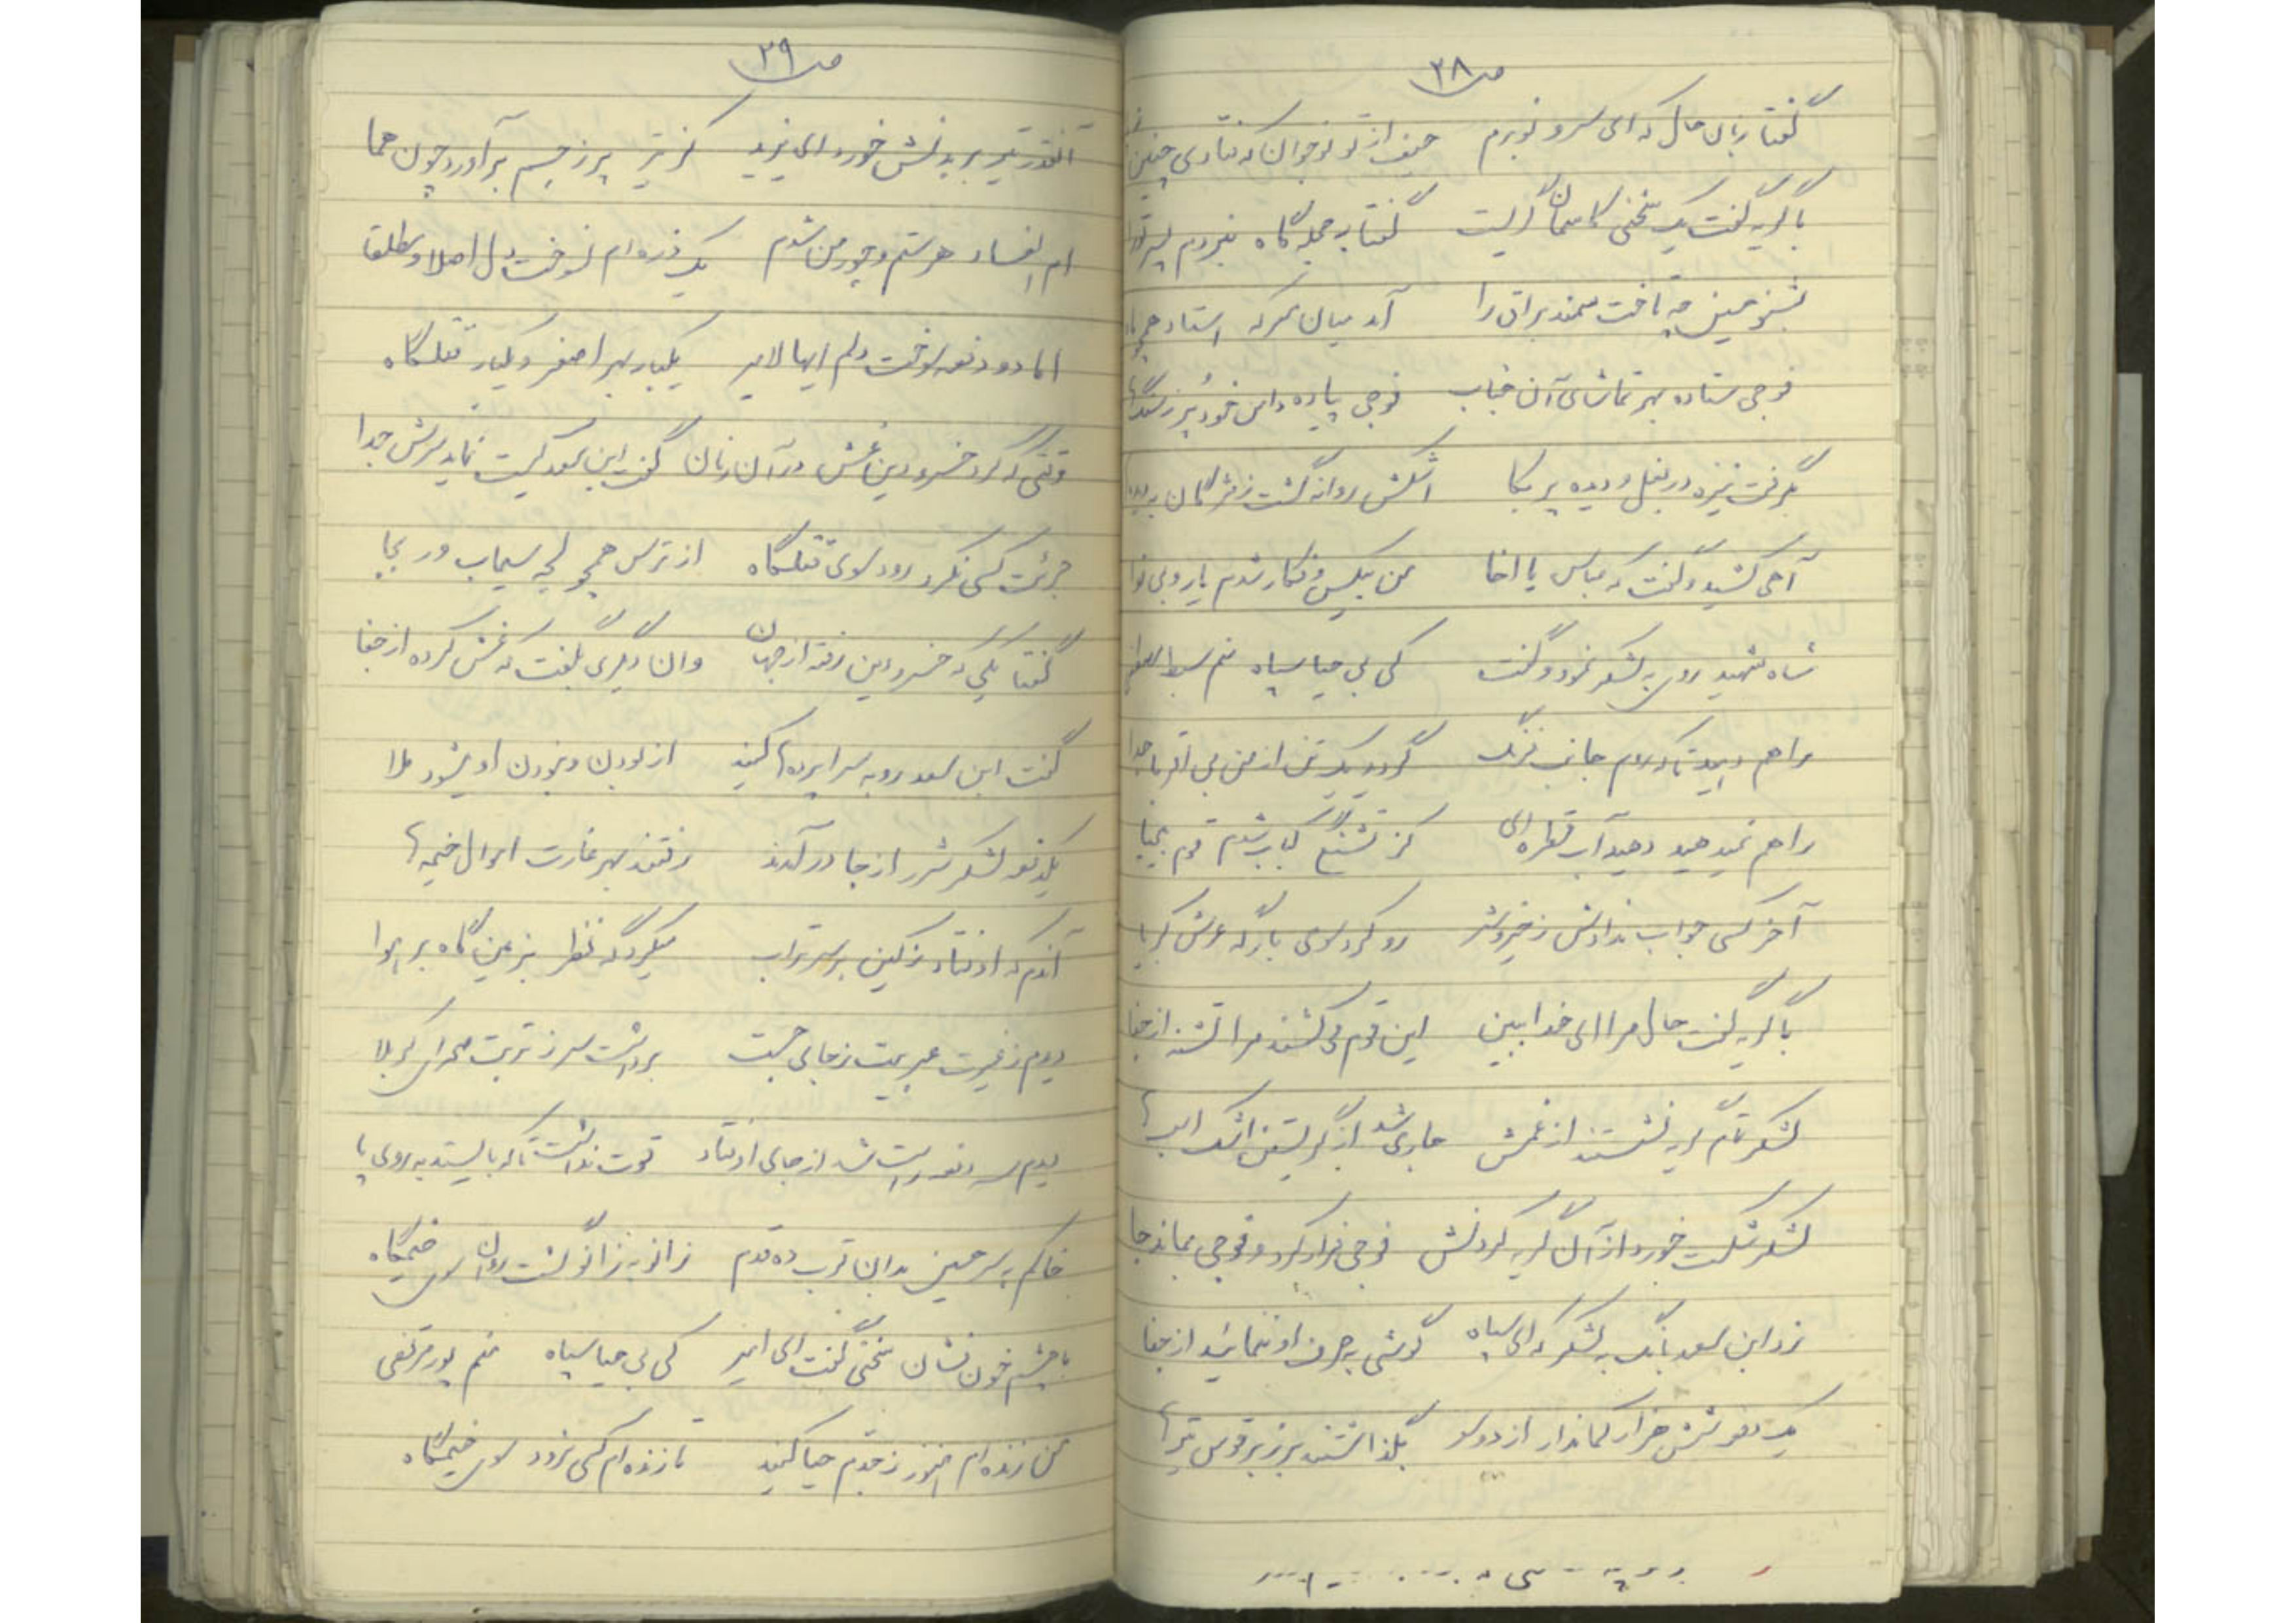 ص ۲۸
گفتا زبان حال که ای سرو نوبرم حیف از تو نوجوان که فتادی چنین
با گریه گفت یک سخنی کاسمان گریست گفتا به حجله گاه نبردم
آمد میان معرکه استاد
فوجی ستاده بهر تماشای آن جناب فوجی پیاده دامن خود پر ز سنگها
بگرفت نیزه در بغل و دیده پر بکا اشکش روانه گشت ز مژگان به
آهی کشید و گفت که عباس یا اخا من بیکس و فکار شدم یار و بی نوا
شاه شهید روی به لشکر نمود و گفت کی بی حیا سپاه منم سبط
راهم دهید تا که روم جانب فرنگ گردید یک تن از من بی اقربا جدا
راهم نمیدهید دهید آب قطره ای کز تشنگی کباب شدم قوم بیحیا
آخر کسی جواب ندادش ز خیر و شر رو کرد سوی بارگه عرش کبریا
با گریه گفت حال مرا ای خدا ببین این قوم می کشند مرا تشنه از جفا
لشکر تمام گریه نشستند از غمش جاری شد از گریستن اشک
لشکر شکست خورد از آن گریه کردنش فوجی فرار کرد و فوجی بماند جا
زد ابن سعد بانگ به لشکر که ای سپاه گوشی به حرف او ننمائید از جفا
یک دفعه شش هزار کماندار از دو سو بگذاشتند بر زبر قوس تیرها
ص ۲۹
آنقدر تیر بر بدنش خورد ای یزید کز تیر پر ز جسم برآورد چون هما
هر ستم و جور من شدم یک ذره ام نسوخت دل اصلا و مطلقا
اما دو دفعه سوخت دلم ایها الامیر یکبار بهر اصغر و یکبار قتلگاه
وقتی که کرد خسرو دین غش در آن زمان گفت ابن سعد کیست نماید سرش جدا
جرئت کسی نکرد رود سوی قتلگاه از ترس همچو لجه سیماب در بجا
گفتا یکی که خسرو دین رفته از جهان وان دیگری بگفت که غش کرده از جفا
گفت ابن سعد رو به سراپرده ها کنید از بودن و نبودن او میشود ملا
یکدفعه لشکر شرر از جا در آمدند رفتند بهر غارت اموال خیمه ها
آندم که اوفتاد ز کین بر سر تراب میکرد گه نظر بزمین گاه بر هوا
دیدم ز غیرت عربیت ز جای جست برداشت سر ز تربت صحرای کربلا
دیدم سه دفعه راست شد از جای اوفتاد قوت نداشت تا که بایستد به روی پا
خاکم به سر حسین بدان قرب ده قدم زانو به زانو گشت روان سوی خیمگاه
با چشم خون فشان سخنی گفت ای امیر کی بی حیا سپاه منم پور مرتضی
من زنده ام هنوز ز جدم حیا کنید تا زنده ام کسی نرود سوی خیمگاه